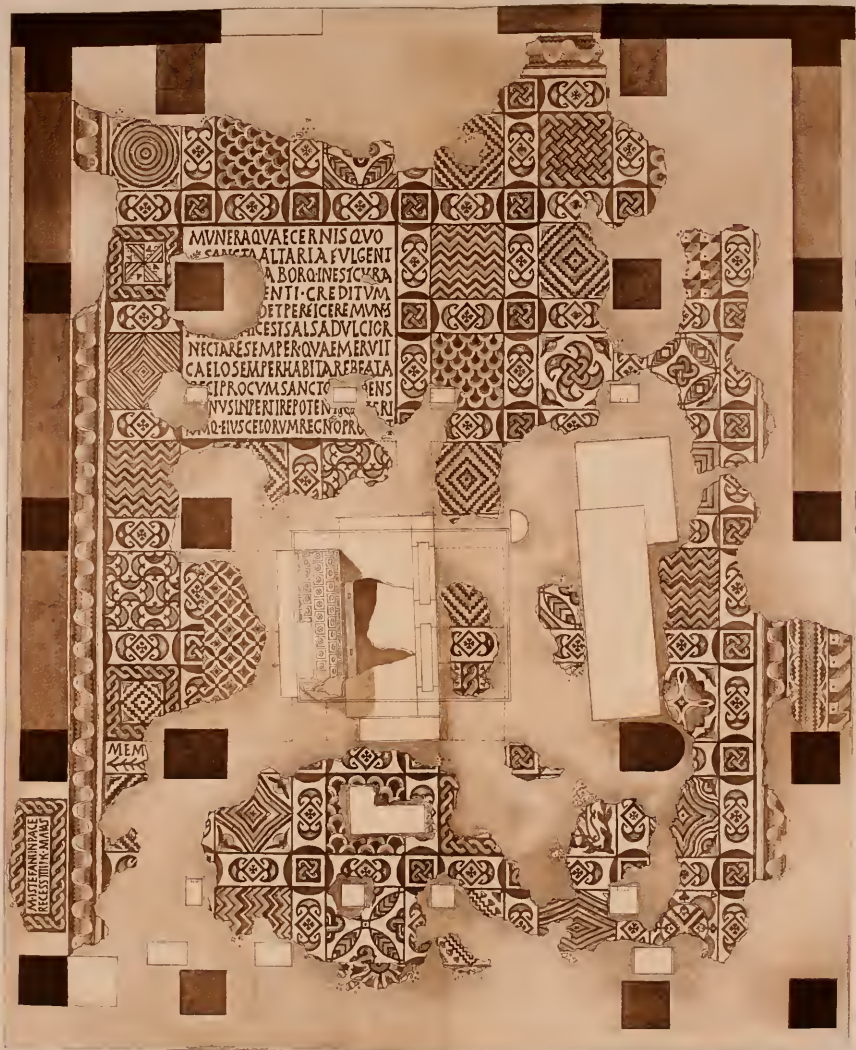 MVNERAQVAECERNISQVO
SANCTAALTARIAFVLGENT
ABORQ·INESTCVRA
ENTI·CREDITVM
DETPERFICEREMVNS
ICESTSALSADVLCIOR
NECTARESEMPERQVAEMERVIT
CAELOSEMPERHABITAREBEATA
RECIPROCVMSANCTO ENS
NVSINPERTIREPOTEN RI
MQ·EIVSCELORVMREGNOPRO
MEM
MISTEFANIINPACE
RECESSITIIIIK·MAIAS